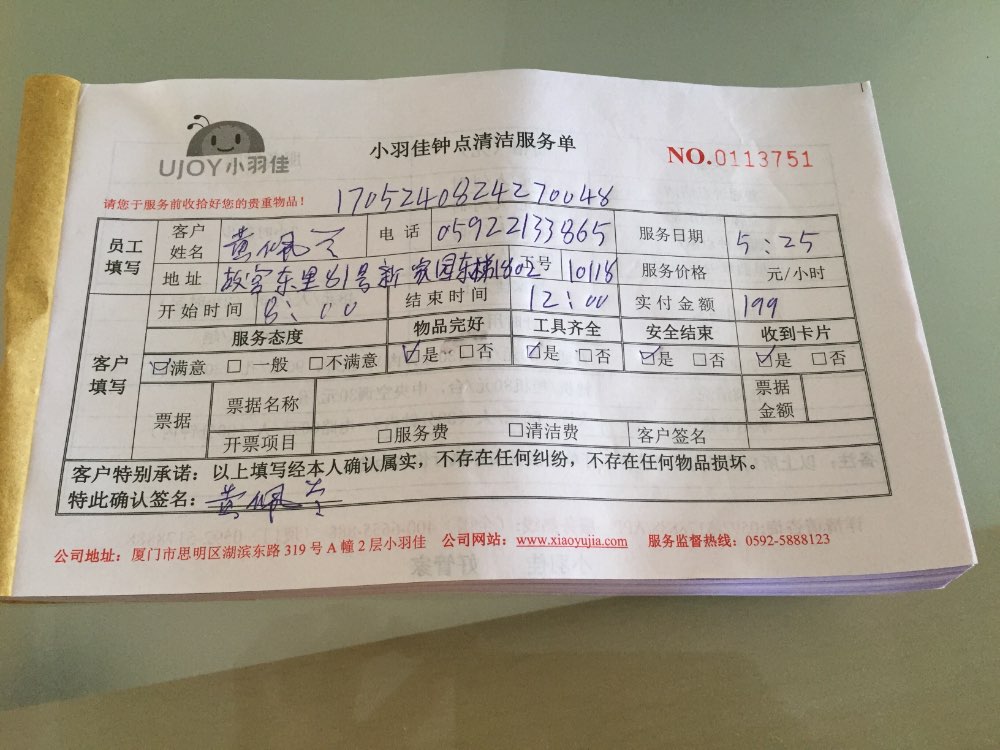 UJOY小羽佳
小羽佳钟点清洁服务单
NO.0113751
请您于服务前收拾好您的贵重物品!
1705240824270048
员工填写 客户姓名 黄佩 电话 05922133865 服务日期 5:25
地址 故宫东里81号新家园东梯1802 号 10118 服务价格 元/小时
客户填写 开始时间 8:00 结束时间 12:00 实付金额 199
服务态度 物品完好 工具齐全 安全结束 收到卡片
☑满意 □一般 □不满意 ☑是 □否 ☑是 □否 ☑是 □否 ☑是 □否
票据 票据名称 票据金额
开票项目 □服务费 □清洁费 客户签名
客户特别承诺:以上填写经本人确认属实,不存在任何纠纷,不存在任何物品损坏。
特此确认签名:黄佩
公司地址:厦门市思明区湖滨东路319号A幢2层小羽佳 公司网站:www.xiaoyujia.com 服务监督热线:0592-5888123